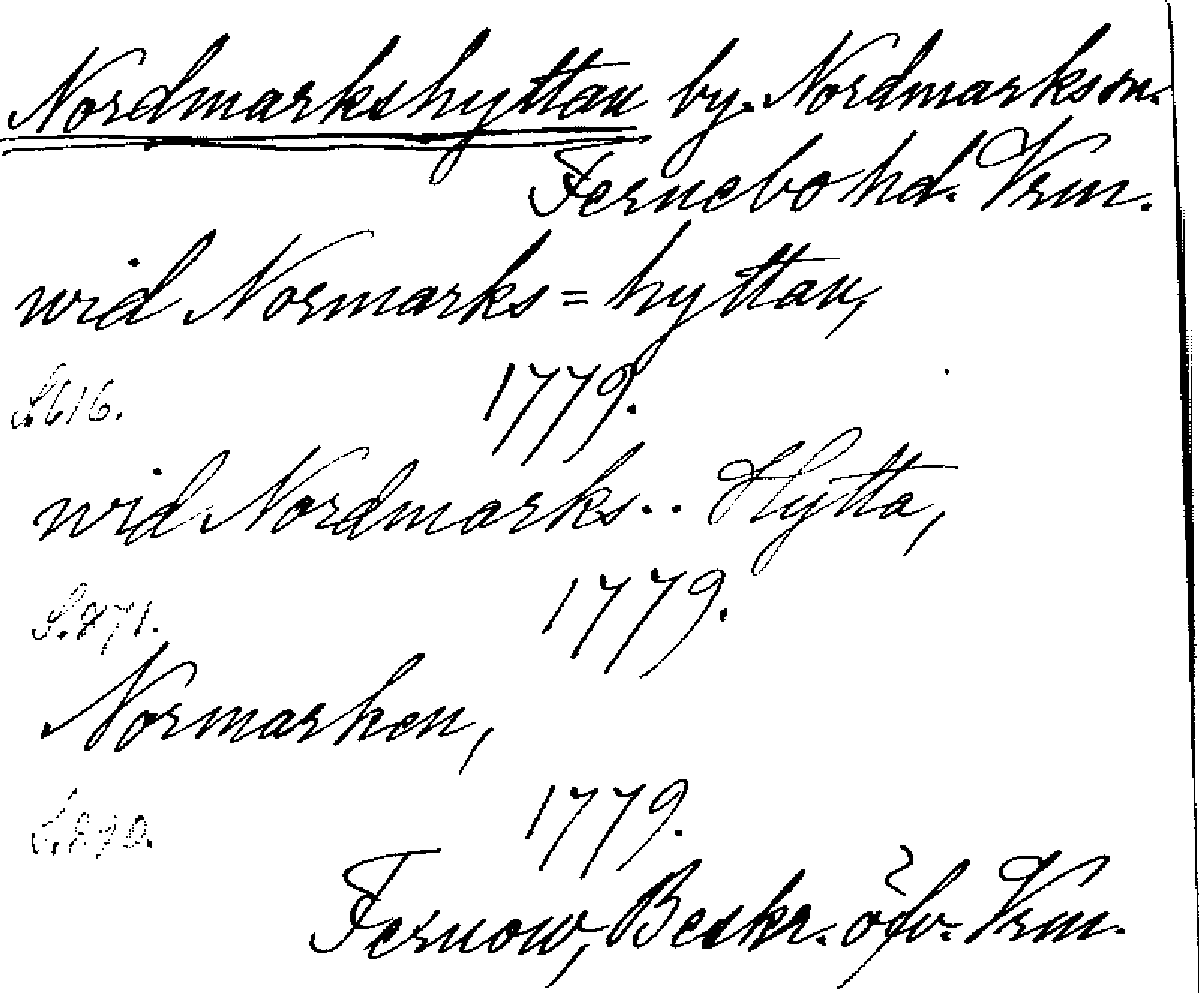 Nordmarkshyttan by. Nordmarks sn.
Fernebo hd. Vrm.
wid Normarks=hyttan,
S. 616. 1779.
wid Nordmarks.. Hytta,
S. 871. 1779.
Normarken,
S. 870. 1779.
Fernow, Beskr. öfv. Vrm.